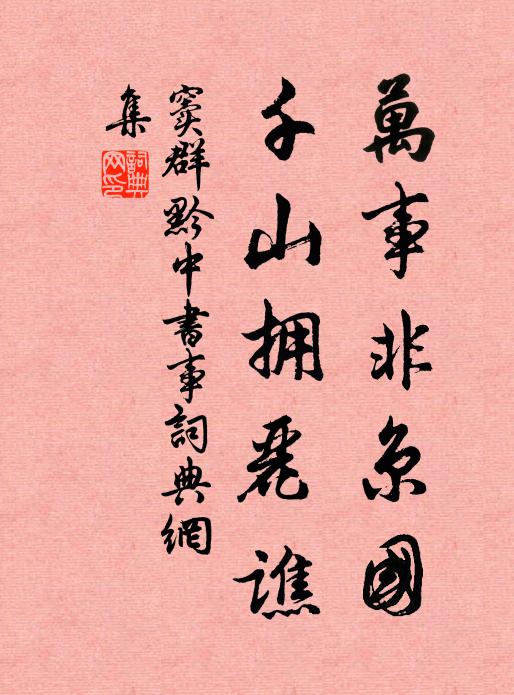 萬事非京國
千山拥麗譙
竇群黔中書事詞典網
集
詞典網印